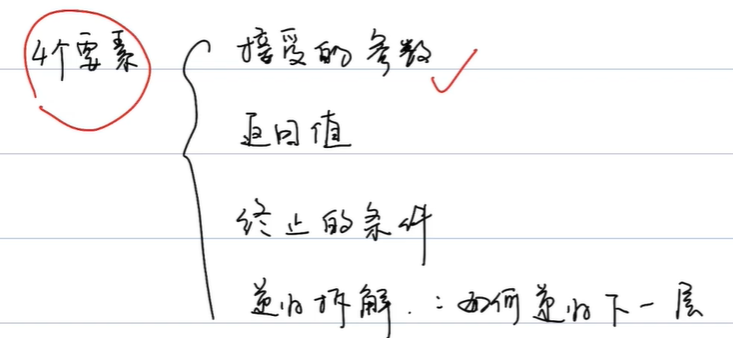 4个要素
接受的参数
返回值
终止的条件
递归拆解：如何递归下一层